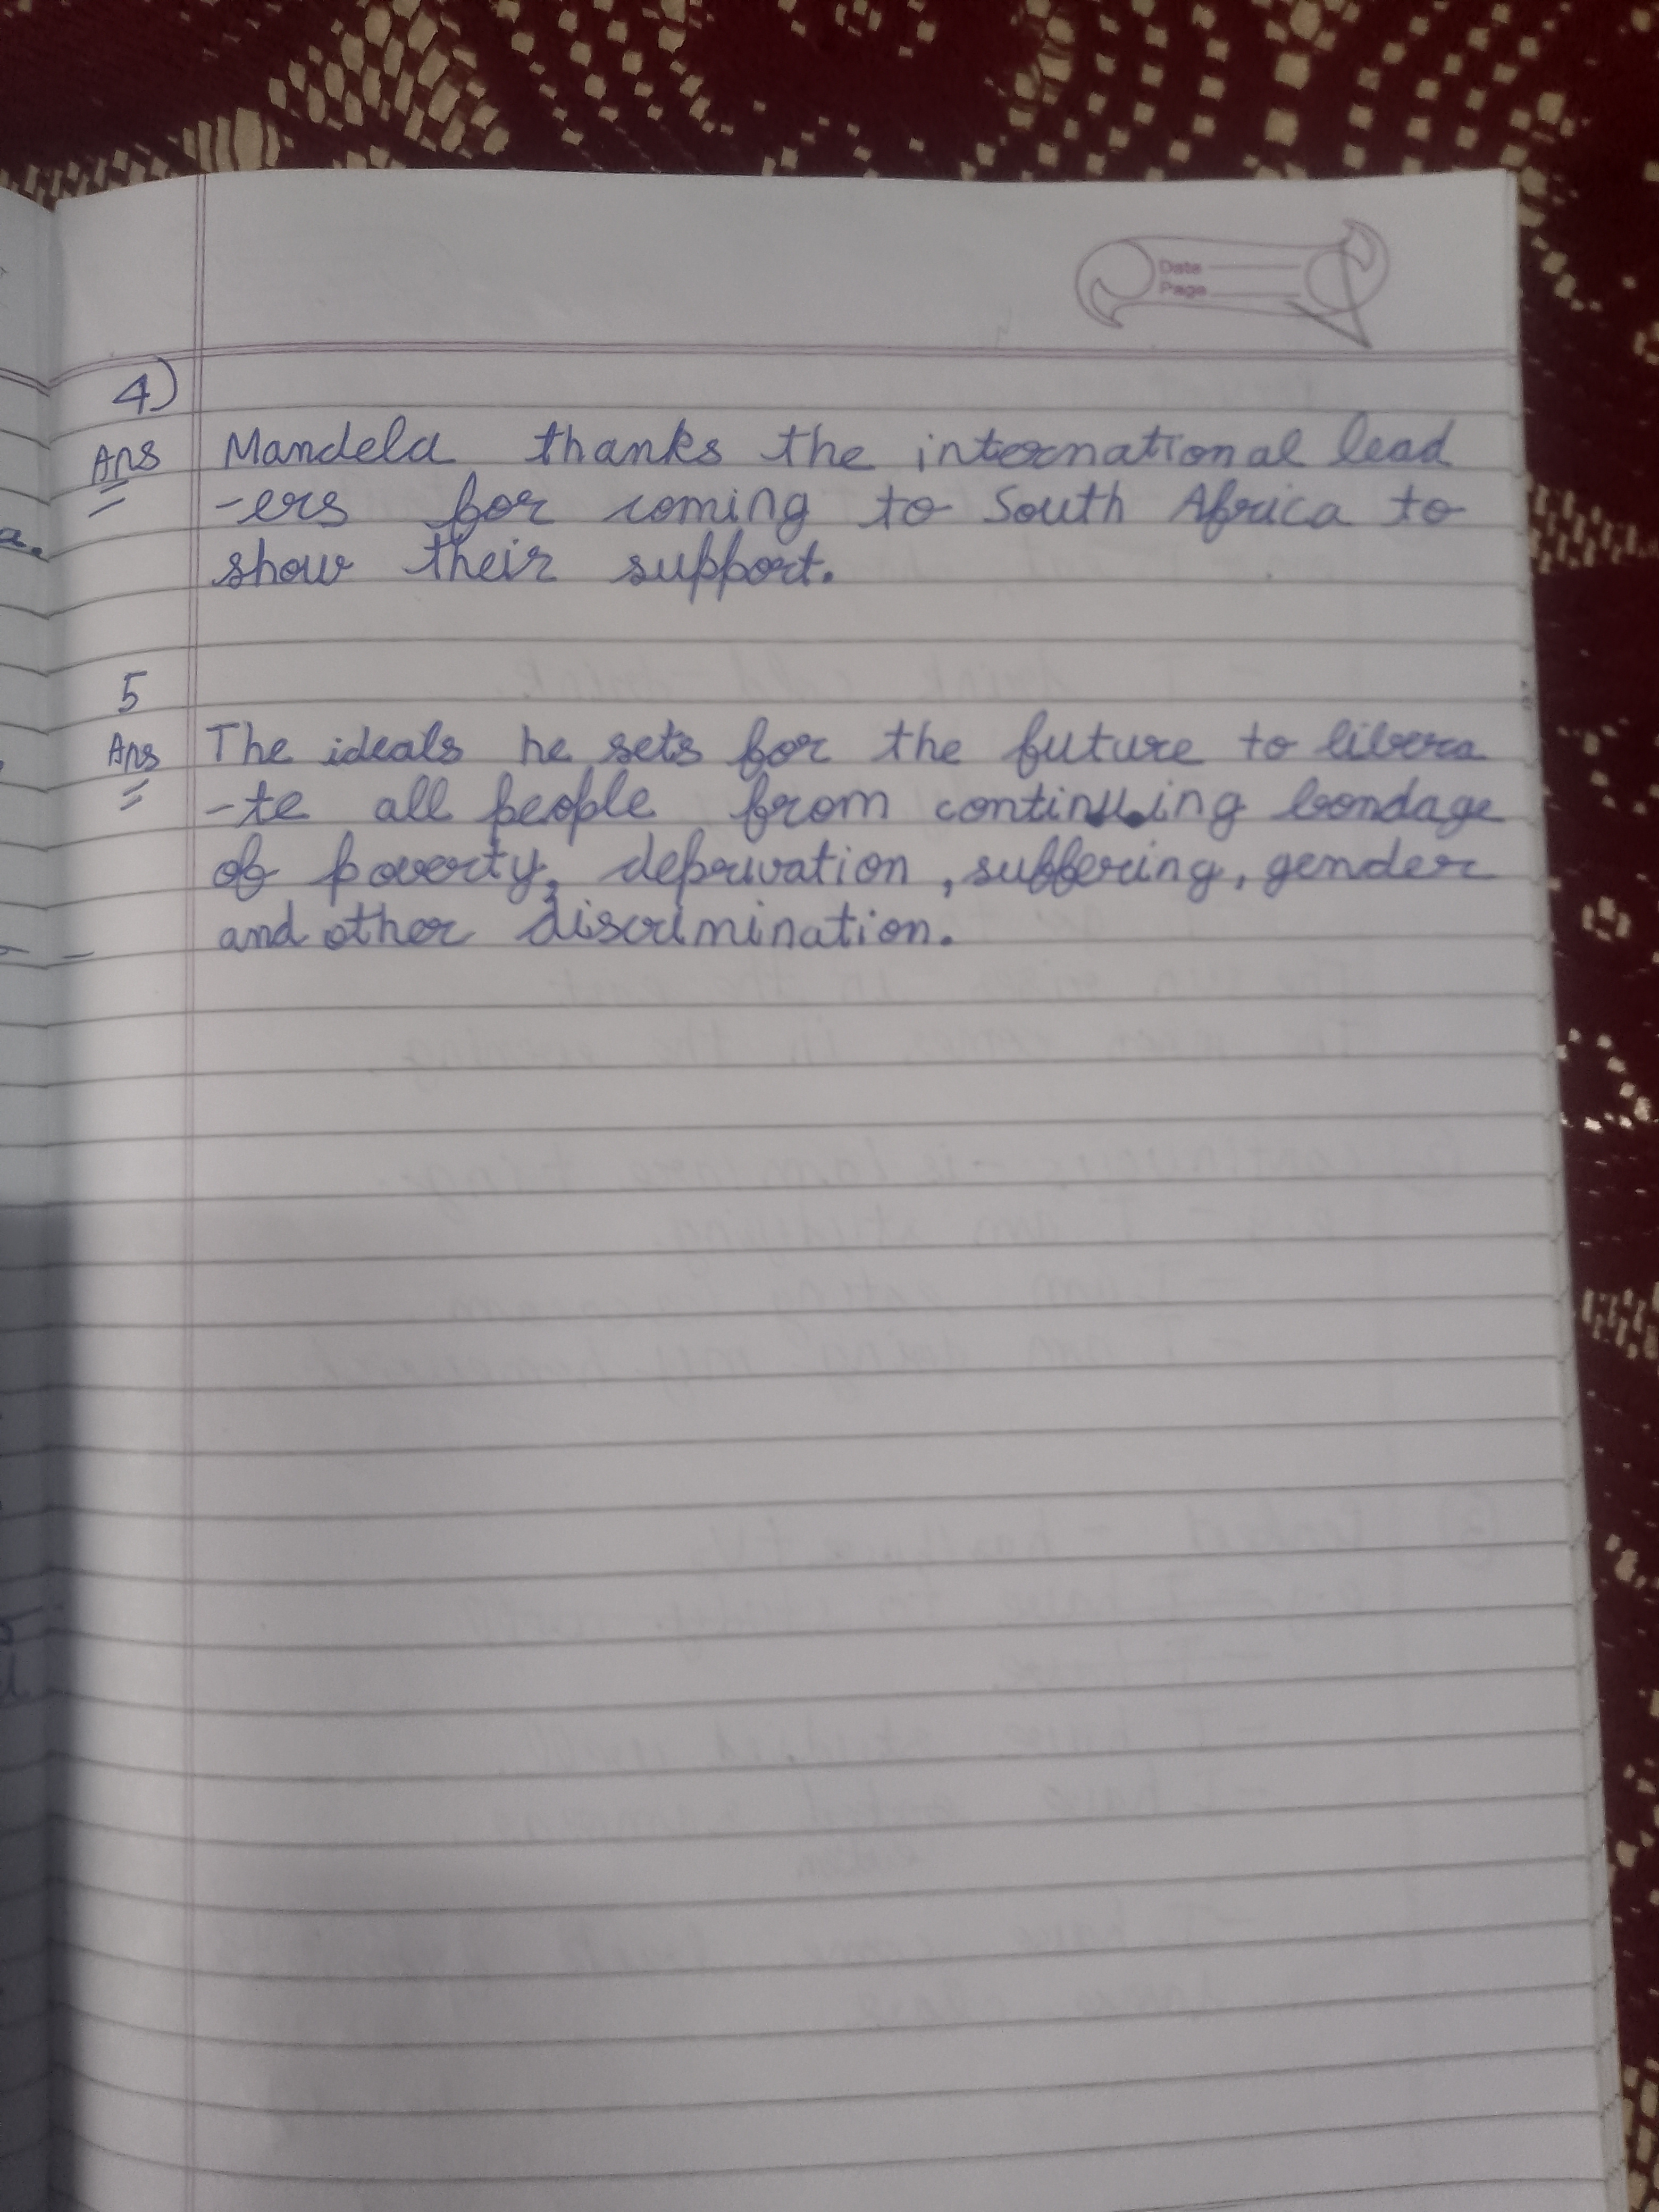 Date
Page
4)
Ans Mandela thanks the international lead
-ers for coming to South Africa to
show their support.
5
Ans The ideals he sets for the future to libera
-te all people from continuing bondage
of poverty, deprivation, suffering, gender
and other discrimination.